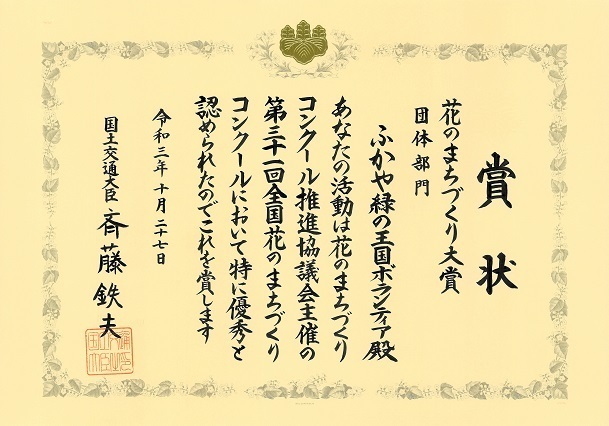 賞状
花のまちづくり大賞
団体部門
ふかや緑の王国ボランティア殿
あなたの活動は花のまちづくり
コンクール推進協議会主催の
第三十一回全国花のまちづくり
コンクールにおいて特に優秀と
認められたのでこれを賞します
令和三年十月二十七日
国土交通大臣 斉藤鉄夫